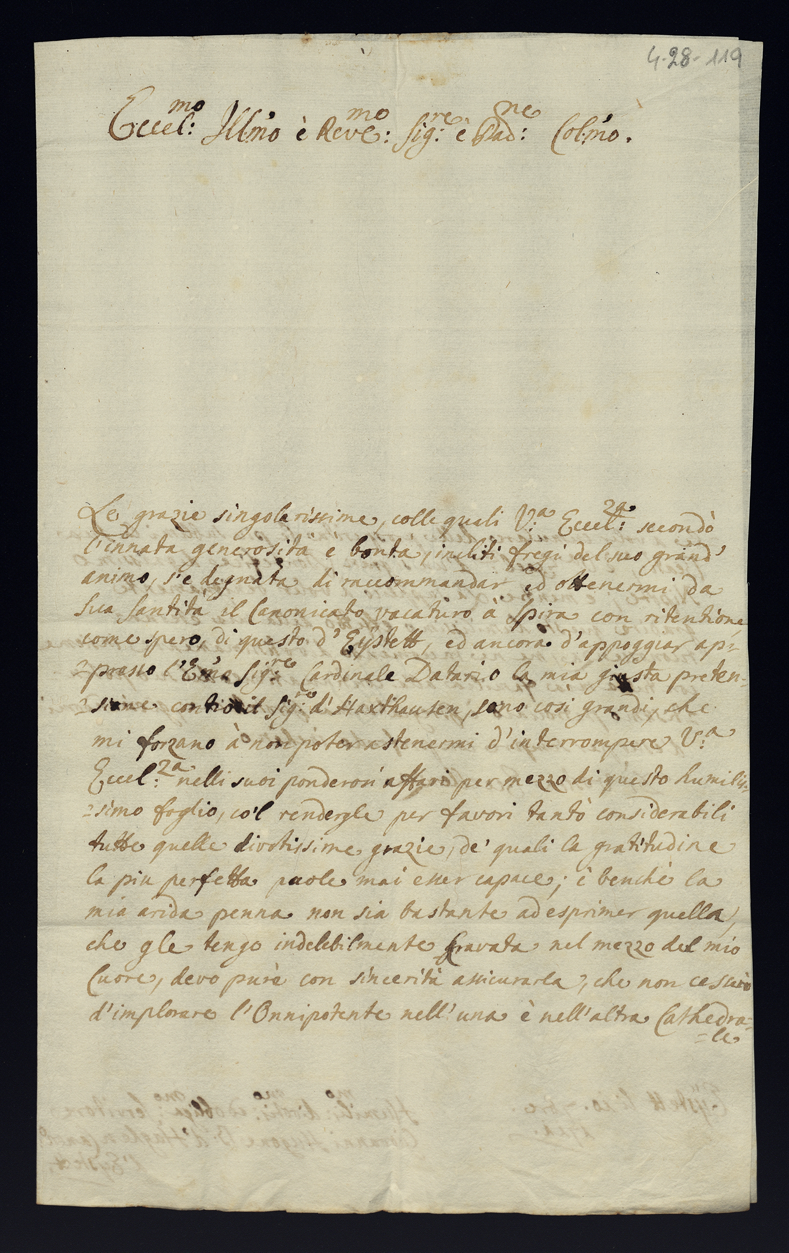 4-28-119
Eccel:mo Ill'mo è Reve:mo Sig:re è Pad:ne Col'mo.
Le grazie singolarissime, colle quali V:a Eccel:za secondò
l'innata generosità e bontà, incliti fregi del suo grand'
animo, s'e degnata di raccommandar ed ottenermi da
Sua Santità il Canonicato vacaturo à Spira con ritentione,
come spero, di questo d'Eystett, ed ancora d'appoggiar ap=
=presso l'Em'a Sig:re Cardinale Datario la mia giusta preten=
=sione contro il Sig:re d'Haxthausen, sono così grandi, che
mi forzano à non poter astenermi d'interrompere V:a
Eccel:za nelli suoi ponderosi affari per mezzo di questo humilis=
=simo foglio, co'l rendergle per favori tantò considerabili
tutte quelle divotissime grazie, de' quali la gratitudine
la piu perfetta puole mai esser capace; è benchè la
mia arida penna non sia bastante ad esprimer quella,
che gle tengo indelebilmente gravata nel mezzo del mio
Cuore, devo purè con sincerità assicurarla, che non cesserò
d'implorare l'Onnipotente nell'una è nell'altra Cathedra=
=le